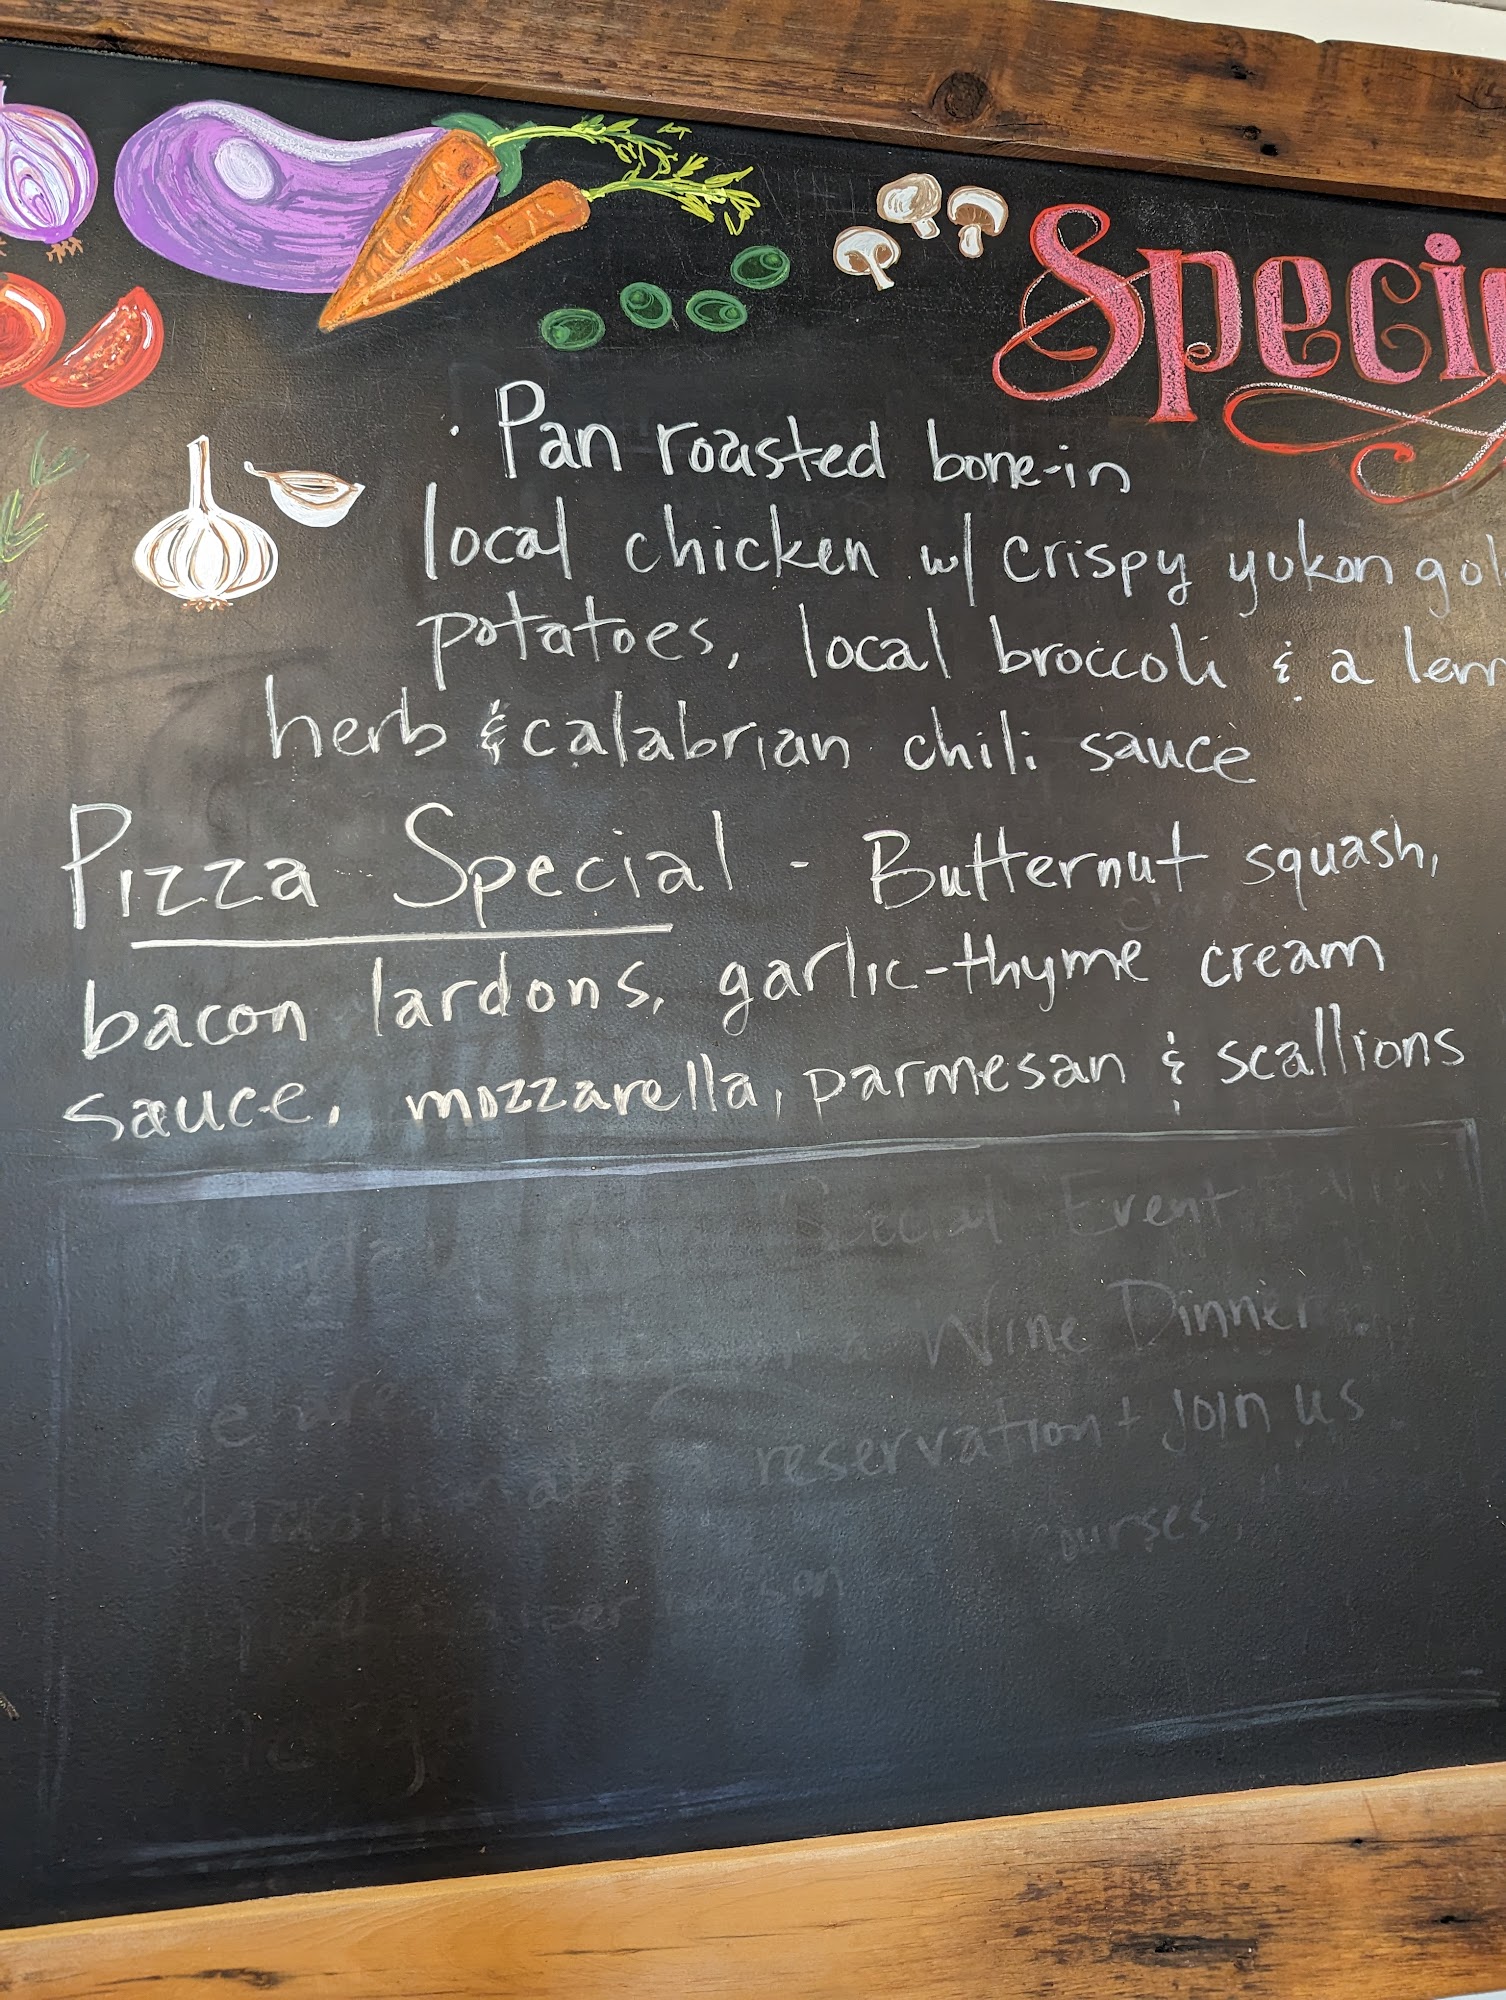 Speci
· Pan roasted bone-in
local chicken w/ crispy yukon gol
potatoes, local broccoli & a lem
herb & calabrian chili sauce
Pizza Special - Butternut squash,
bacon lardons, garlic-thyme cream
sauce, mozzarella, parmesan & scallions
Special Event
a Wine Dinner.
reservation + join us
courses,